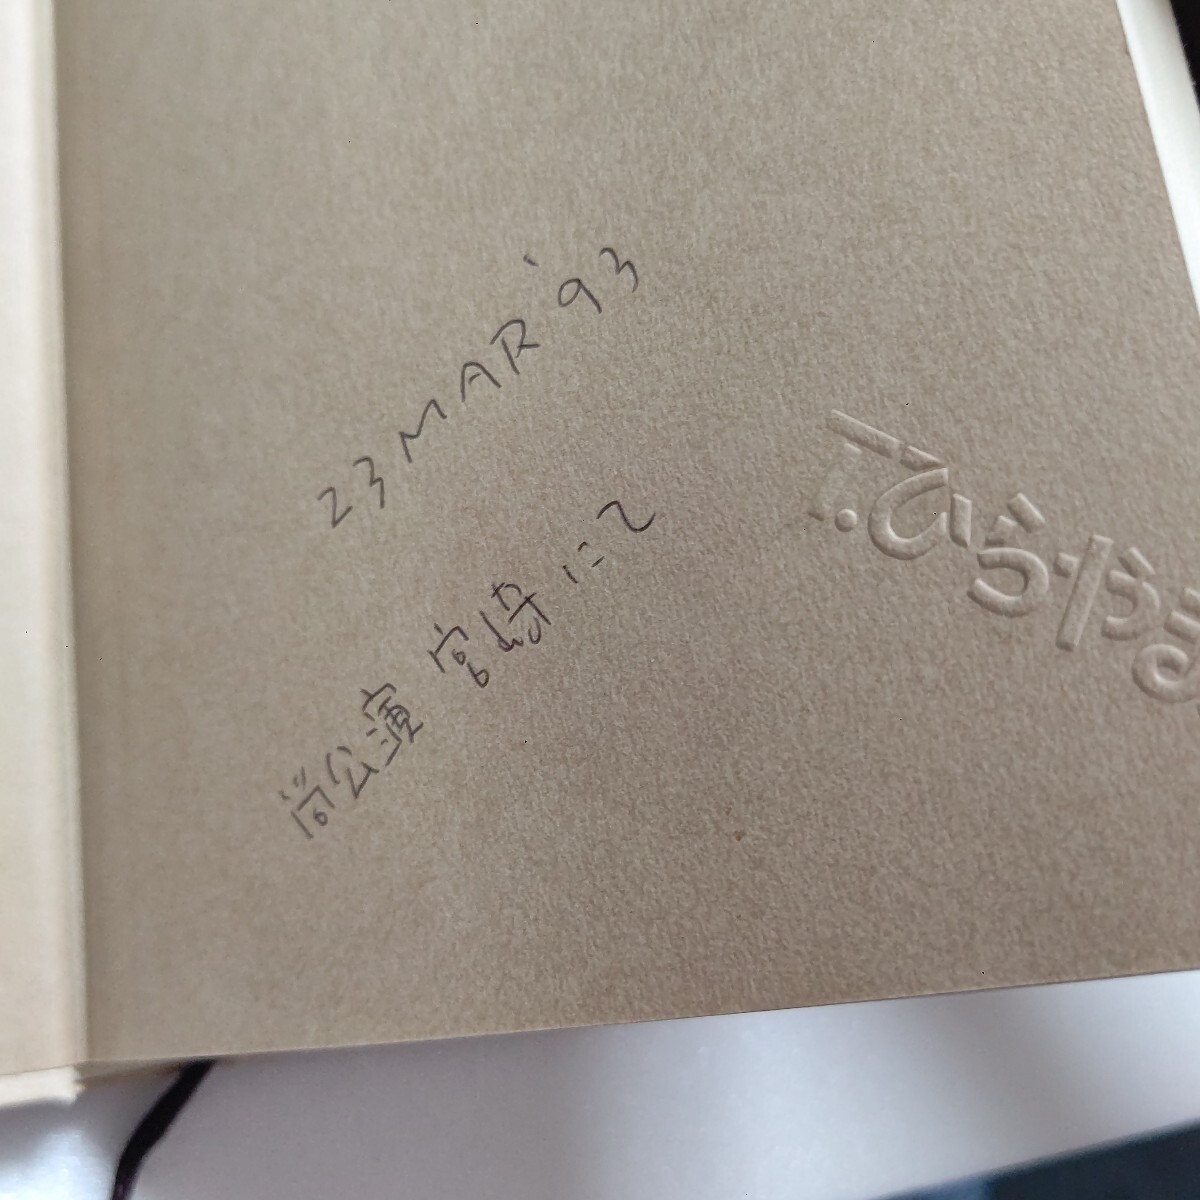 23 MAR '93
尚公演 宮崎にて
T.ひらやま